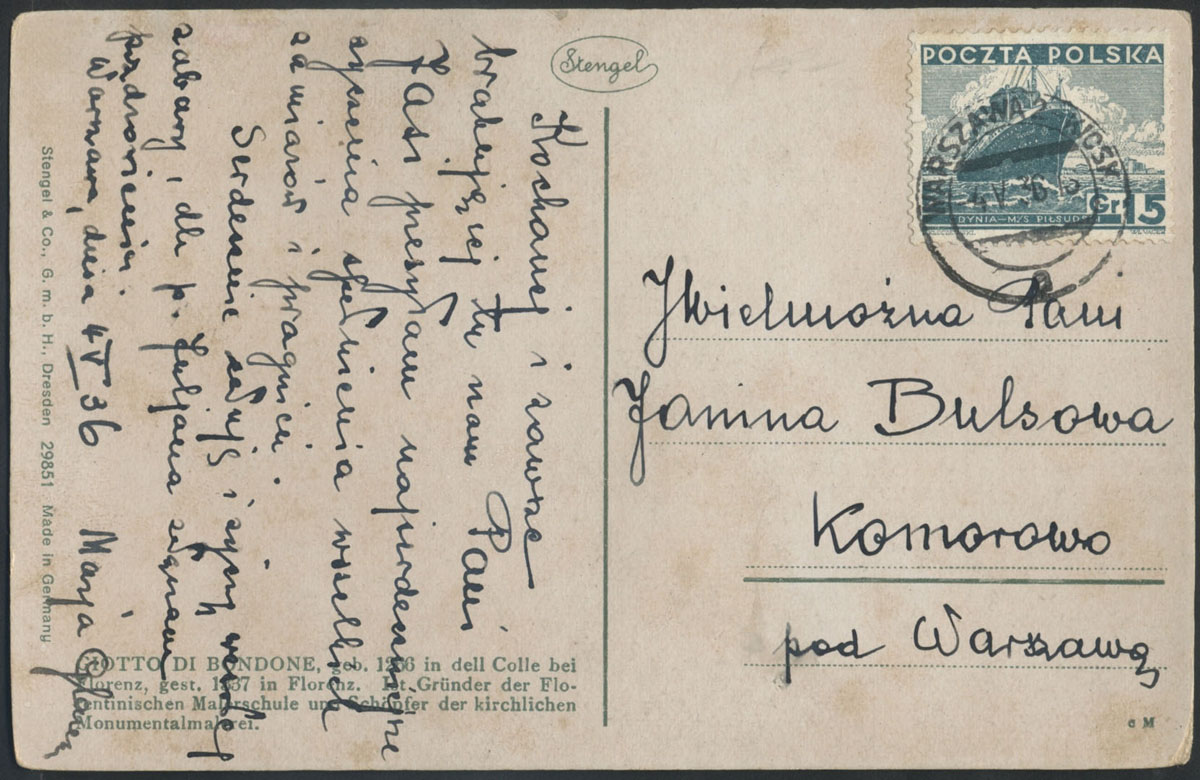 Stengel
POCZTA POLSKA
WARSZAWA 2
4 V 36
Gr 15
GDYNIA—M/S PIŁSUDSKI
JWielmożna Pani
Janina Bulsowa
Komorowo
pod Warszawą
c M
Kochanej i zawsze
brakującej tu nam Pani
Jasi przesyłam najserdeczniejsze
życzenia spełnienia wszelkich
zamiarów i pragnień.
Serdecznie całuję i życzę wesołej
zabawy, dla p. Juljana załączam
pozdrowienia
Warszawa, dnia 4 V 36 Marja
Stengel & Co., G. m. b. H., Dresden 29851 Made in Germany
GIOTTO DI BONDONE, geb. 1266 in dell Colle bei
Florenz, gest. 1337 in Florenz. Ist Gründer der Flo-
rentinischen Malerschule und Schöpfer der kirchlichen
Monumentalmalerei.